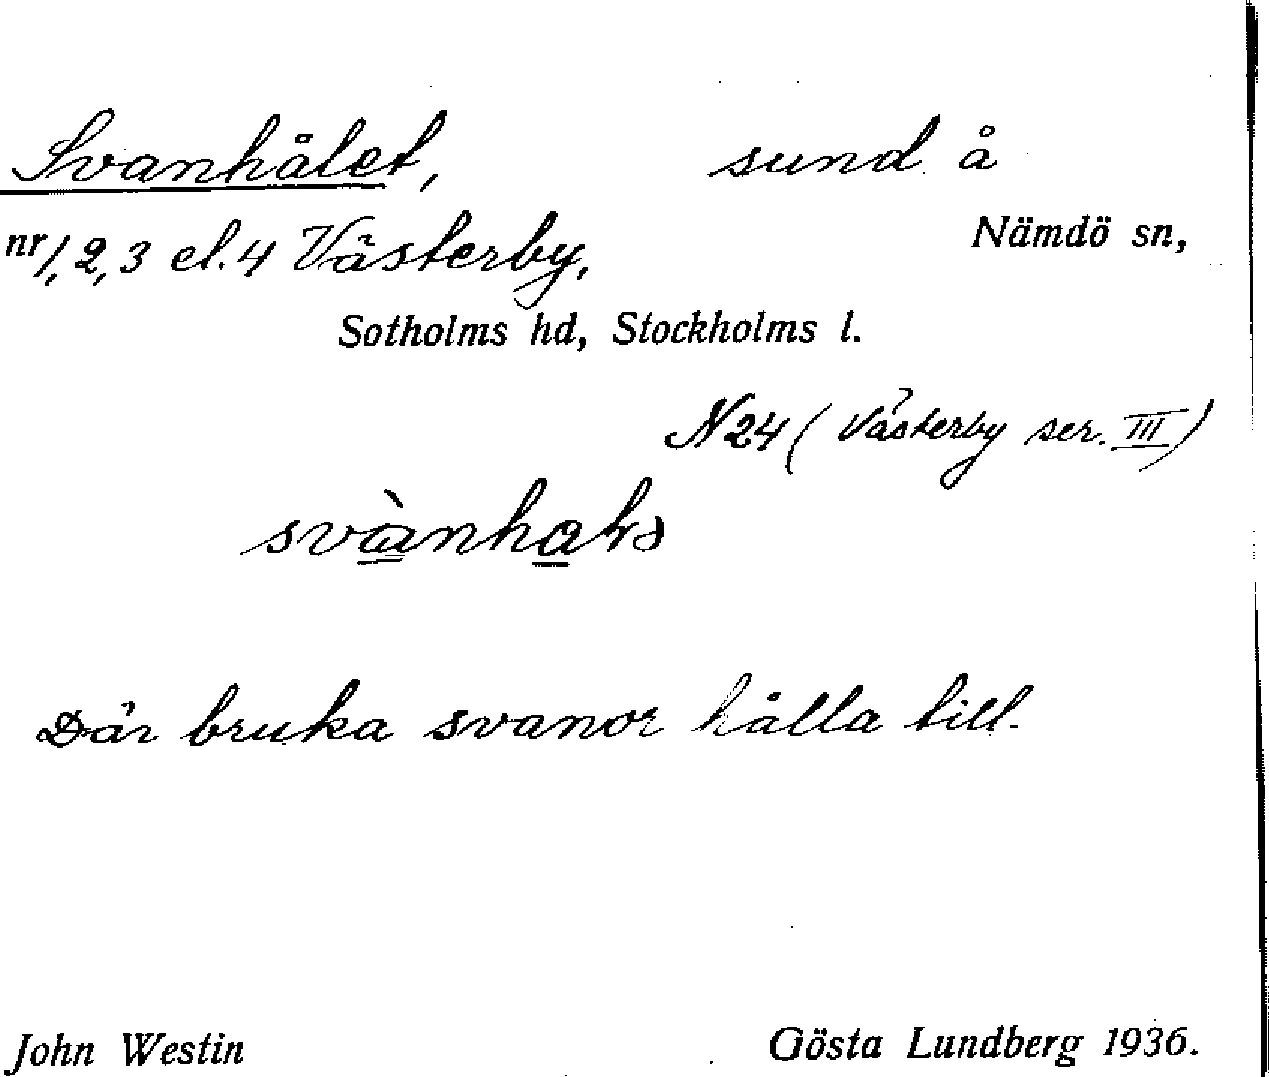 Svanhålet, sund å
nr 1, 2, 3 el. 4 Västerby, Nämdö sn,
Sotholms hd, Stockholms l.
N 24 (Västerby ser. III)
Där bruka svanor hålla till.
John Westin Gösta Lundberg 1936.